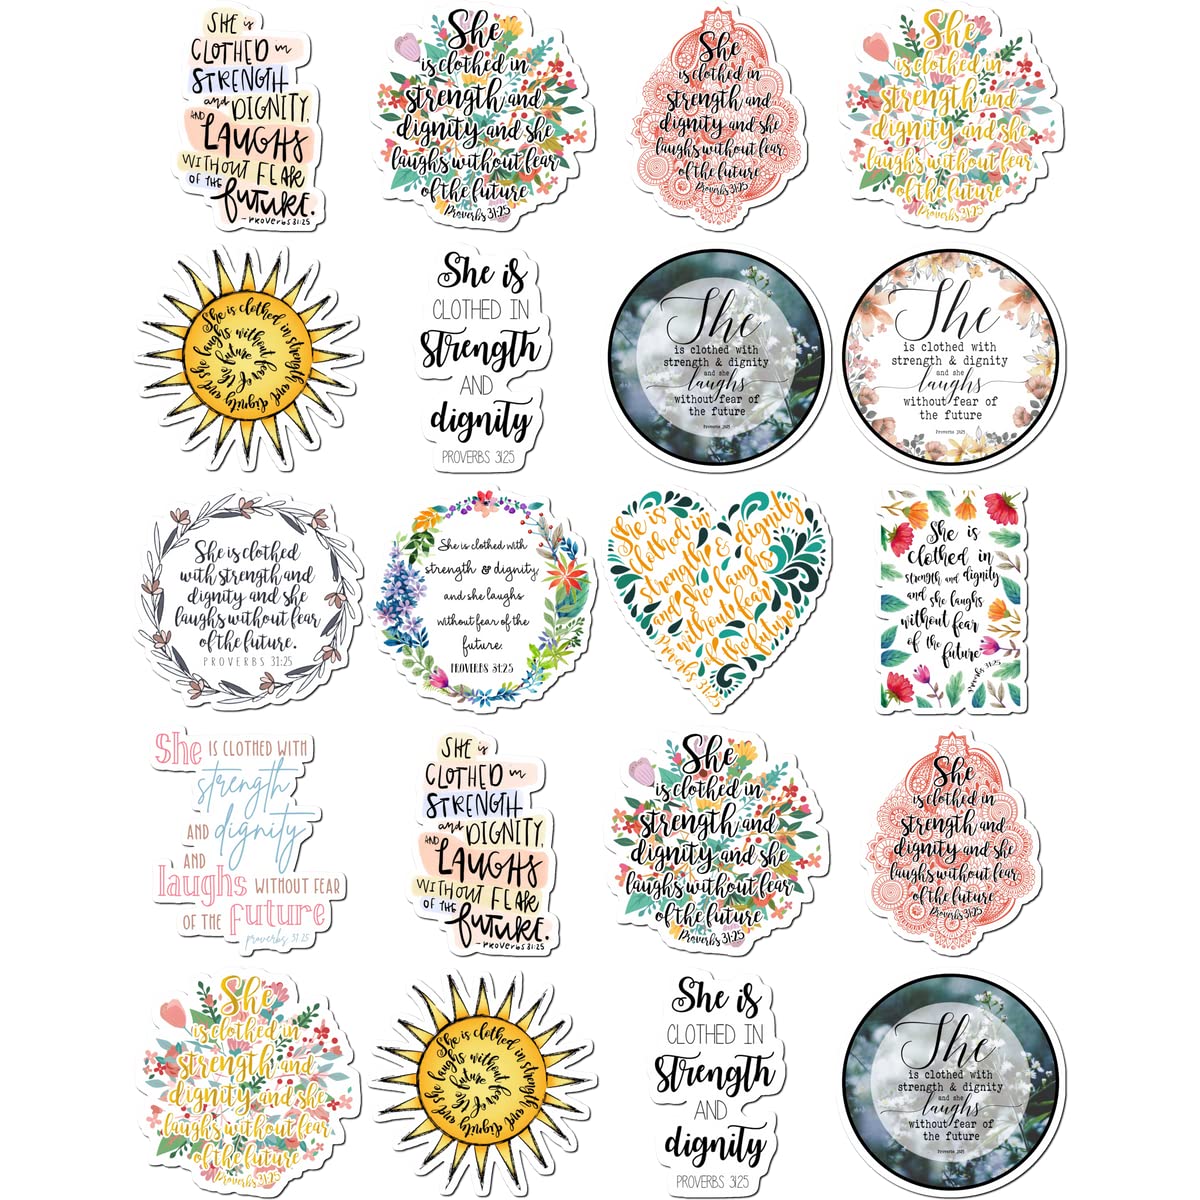 SHE is
CLOTHED in
STRENGTH
and DIGNITY,
AND LAUGHS
WITHOUT FEAR
OF THE future.
- PROVERBS 31:25
She
is clothed in
strength and
dignity and she
laughs without fear
of the future
Proverbs 31:25
She
is clothed in
strength and
dignity and she
laughs without fear
of the future
Proverbs 31:25
She
is clothed in
strength and
dignity and she
laughs without fear
of the future
Proverbs 31:25
She is clothed in strength and dignity and she laughs without fear of the future
She is
CLOTHED IN
strength
AND
dignity
PROVERBS 31:25
She
is clothed with
strength & dignity
and she
laughs
without fear of
the future
Proverbs 31:25
She
is clothed with
strength & dignity
and she
laughs
without fear of
the future
Proverbs 31:25
She is clothed
with strength and
dignity and she
laughs without fear
of the future.
PROVERBS 31:25
She is clothed with
strength & dignity
and she laughs
without fear of the
future.
PROVERBS 31:25
She is
clothed in
strength & dignity
and she laughs
without fear
of the future!
Proverbs 31:25
She is
clothed in
strength and dignity
and she laughs
without fear
of the future
Proverbs 31:25
She IS CLOTHED WITH
strength
AND dignity
AND
laughs WITHOUT FEAR
OF THE future
proverbs 31:25
SHE is
CLOTHED in
STRENGTH
and DIGNITY,
AND LAUGHS
WITHOUT FEAR
OF THE future.
- PROVERBS 31:25
She
is clothed in
strength and
dignity and she
laughs without fear
of the future
Proverbs 31:25
She
is clothed in
strength and
dignity and she
laughs without fear
of the future
Proverbs 31:25
She
is clothed in
strength and
dignity and she
laughs without fear
of the future
Proverbs 31:25
She is clothed in strength and dignity and she laughs without fear of the future
She is
CLOTHED IN
strength
AND
dignity
PROVERBS 31:25
She
is clothed with
strength & dignity
and she
laughs
without fear of
the future
Proverbs 31:25